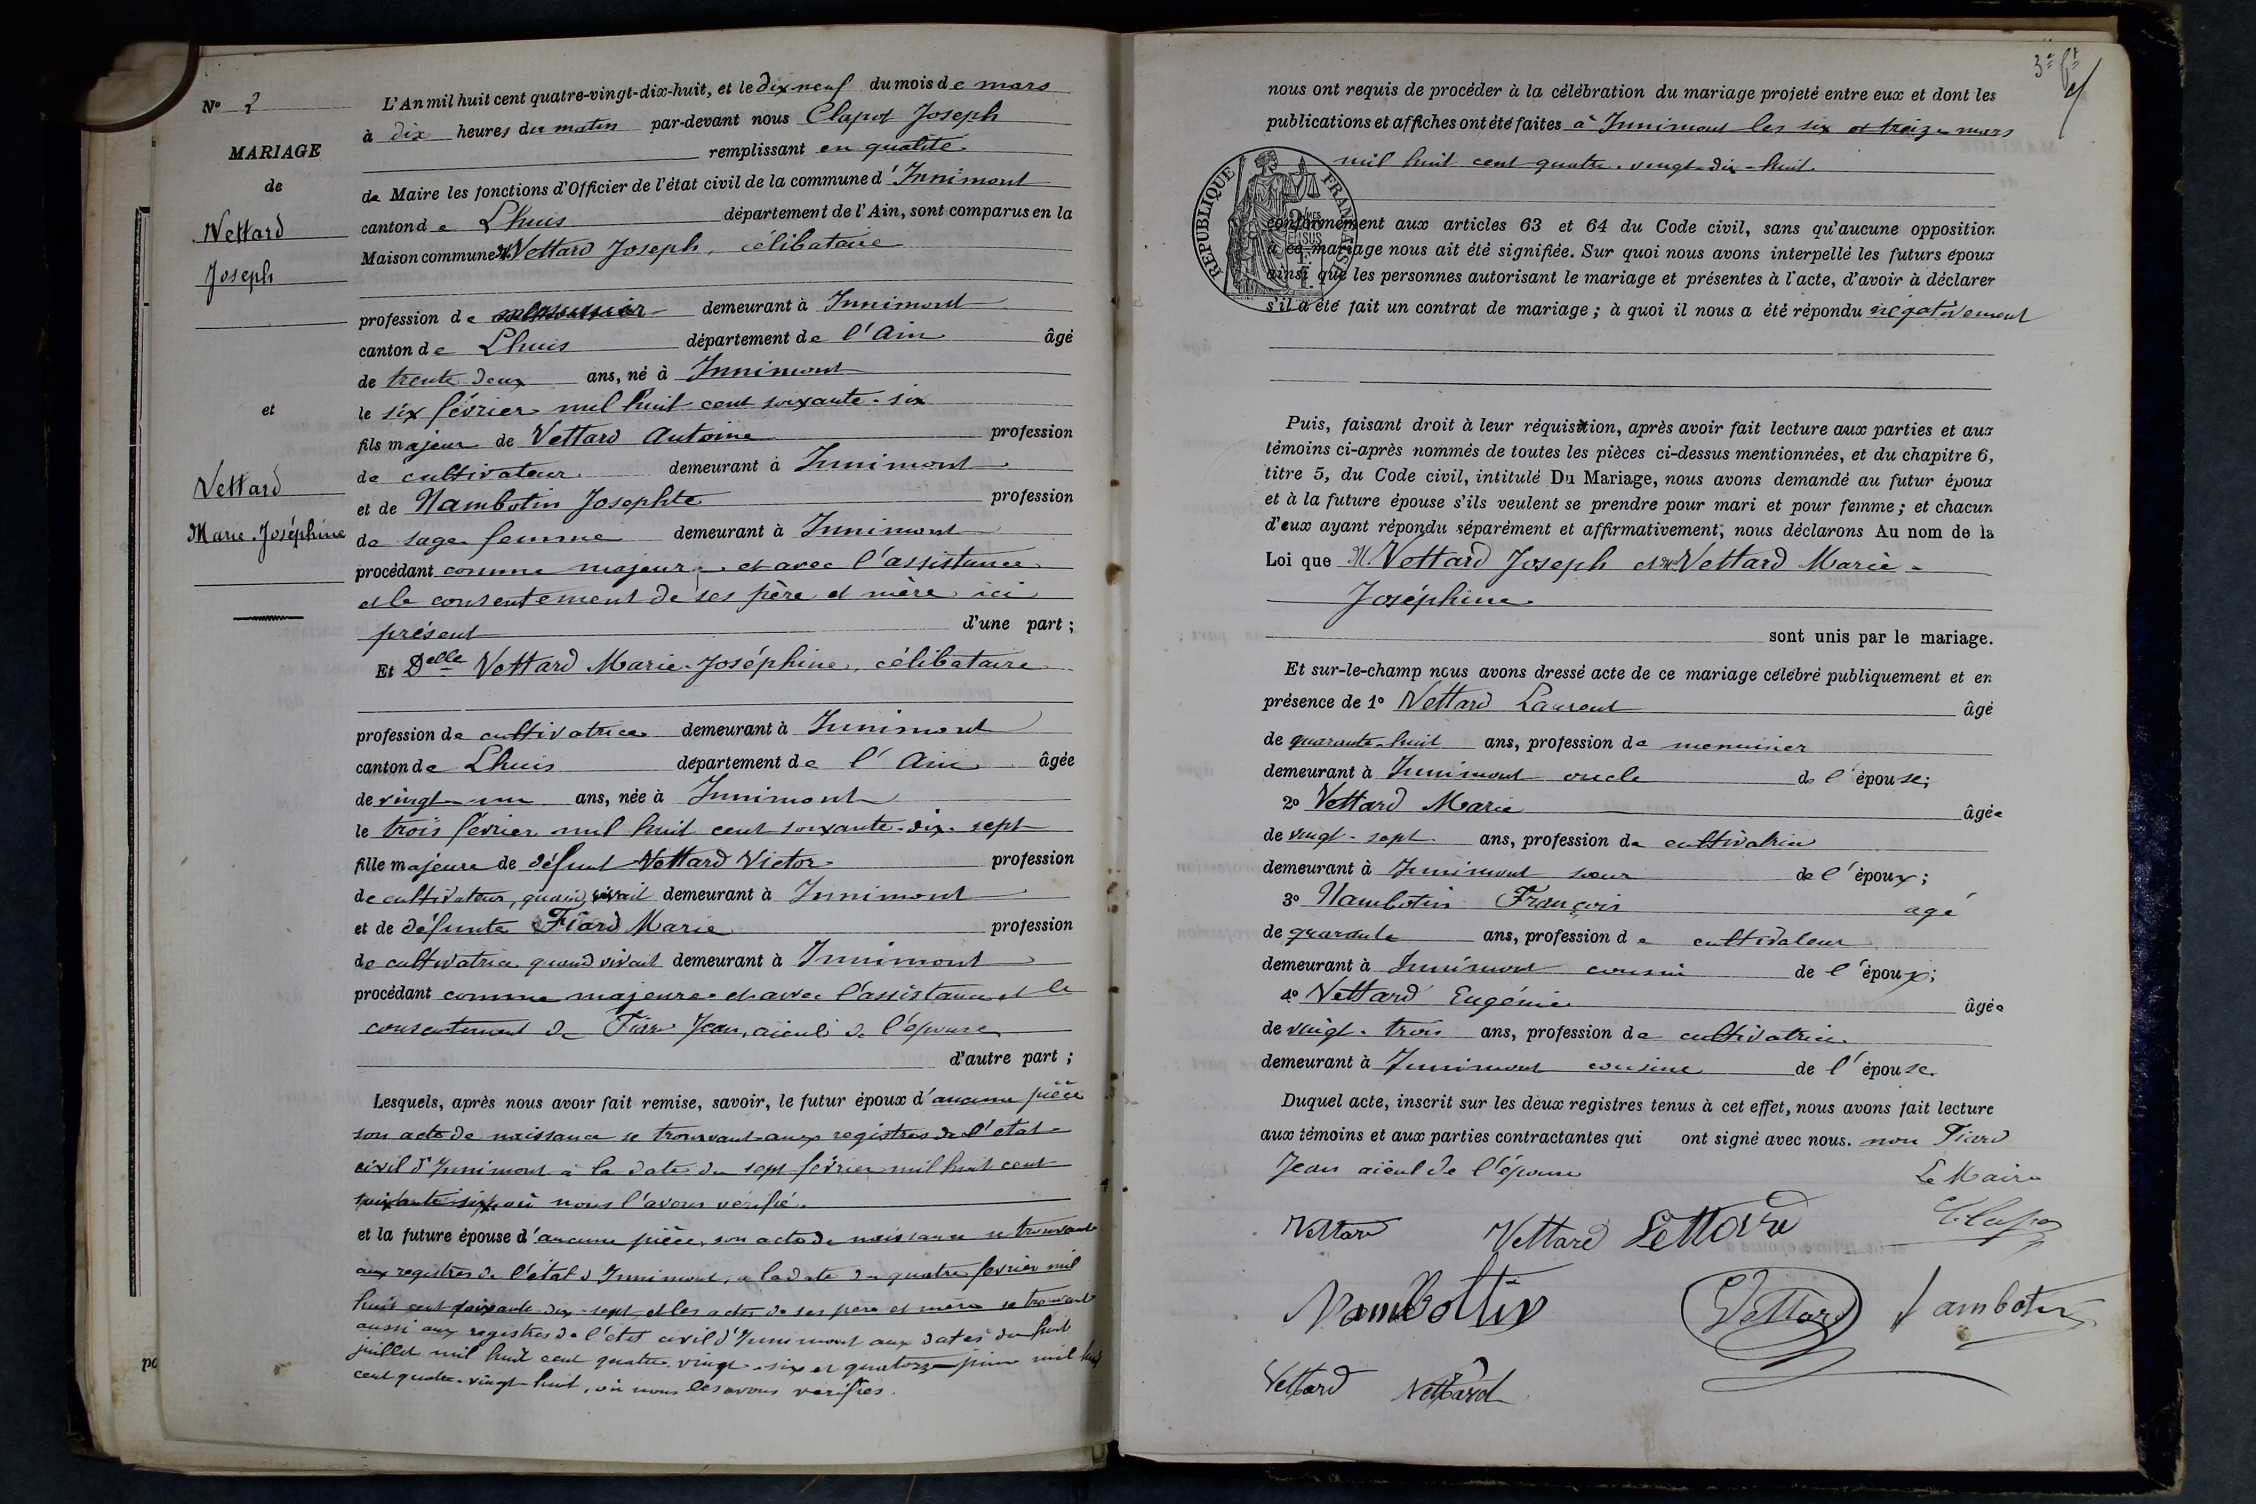 Nº 2
MARIAGE
de
Vettard
Joseph
et
Vettard
Marie-Joséphine
L'An mil huit cent quatre-vingt-dix-huit, et le dix neuf du mois de mars
à dix heures du matin par-devant nous Clapot Joseph
remplissant en qualité
de Maire les fonctions d'Officier de l'état civil de la commune d'Innimont
canton de Lhuis département de l'Ain, sont comparus en la
Maison commune Mr Vettard Joseph, célibataire
profession de demeurant à Innimont
canton de Lhuis département de l'Ain âgé
de trente deux ans, né à Innimont
le six février mil huit cent soixante-six
fils majeur de Vettard Antoine profession
de cultivateur demeurant à Innimont
et de Nambotin Josephte profession
de sage femme demeurant à Innimont
procédant comme majeur et avec l'assistance
et le consentement de ses père et mère ici
présent d'une part ;
Et Delle Vettard Marie-Joséphine, célibataire
profession de cultivatrice demeurant à Innimont
canton de Lhuis département de l'Ain âgée
de vingt-un ans, née à Innimont
le trois février mil huit cent soixante-dix-sept
fille majeure de défunt Vettard Victor profession
de cultivateur, quand vivait demeurant à Innimont
et de défunte Fiard Marie profession
de cultivatrice quand vivait demeurant à Innimont
procédant comme majeure et avec l'assistance et le
consentement de Jean, aïeul de l'épouse
d'autre part ;
Lesquels, après nous avoir fait remise, savoir, le futur époux d'aucune pièce
son acte de naissance se trouvant aux registres de l'état
civil d'Innimont à la date du sept février mil huit cent
soixante-six, où nous l'avons vérifié.
et la future épouse d'aucune pièce, son acte de naissance se trouvant
aux registres de l'état d'Innimont, à la date du quatre février mil
huit cent soixante-dix-sept et les actes de ses père et mère se trouvant
aussi aux registres de l'état civil d'Innimont aux dates du huit
juillet mil huit cent quatre-vingt-six et quatorze juin mil huit
cent quatre-vingt-huit, où nous les avons vérifiés.
po
3e
nous ont requis de procéder à la célébration du mariage projeté entre eux et dont les
publications et affiches ont été faites à Innimont les six et treize mars
mil huit cent quatre-vingt-dix-huit.
RÉPUBLIQUE FRANÇAISE
conformément aux articles 63 et 64 du Code civil, sans qu'aucune opposition
à ce mariage nous ait été signifiée. Sur quoi nous avons interpellé les futurs époux
ainsi que les personnes autorisant le mariage et présentes à l'acte, d'avoir à déclarer
s'il a été fait un contrat de mariage ; à quoi il nous a été répondu négativement
Puis, faisant droit à leur réquisition, après avoir fait lecture aux parties et aux
témoins ci-après nommés de toutes les pièces ci-dessus mentionnées, et du chapitre 6,
titre 5, du Code civil, intitulé Du Mariage, nous avons demandé au futur époux
et à la future épouse s'ils veulent se prendre pour mari et pour femme ; et chacun
d'eux ayant répondu séparément et affirmativement, nous déclarons Au nom de la
Loi que M. Vettard Joseph et Vettard Marie-
Joséphine
sont unis par le mariage.
Et sur-le-champ nous avons dressé acte de ce mariage célébré publiquement et en
présence de 1º Vettard Laurent âgé
de quarante-huit ans, profession de menuisier
demeurant à Innimont oncle de l'épouse ;
2º Vettard Marie âgée
de vingt-sept ans, profession de cultivatrice
demeurant à Innimont sœur de l'époux ;
3º Nambotin François agé
de quarante ans, profession de cultivateur
demeurant à Innimont cousin de l'époux ;
4º Vettard Eugénie âgée
de vingt-trois ans, profession de cultivatrice
demeurant à Innimont cousine de l'épouse
Duquel acte, inscrit sur les deux registres tenus à cet effet, nous avons fait lecture
aux témoins et aux parties contractantes qui ont signé avec nous. non Fiard
Jean aïeul de l'épouse
Le Maire
Clapot
Vettard Vettard Vettard
Nambottin Vettard Nambotin
Vettard Vettard